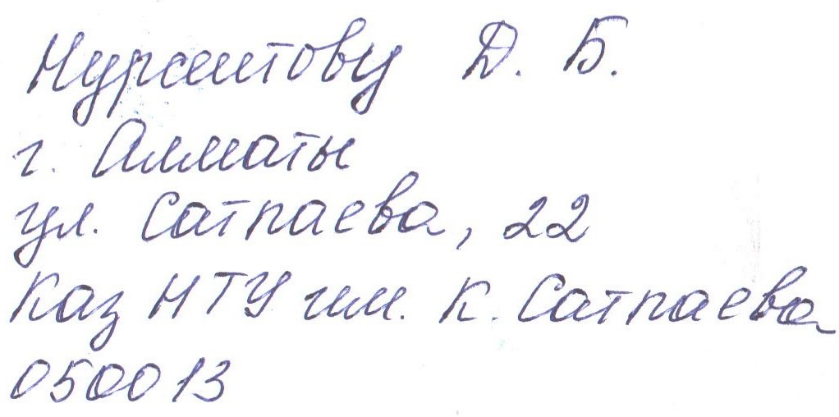 Нурсеитову Д. Б.
г. Алматы
ул. Сатпаева, 22
Каз НТУ им. К. Сатпаева
050013